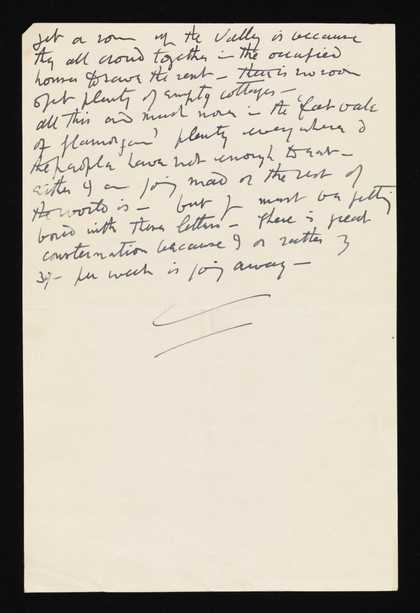 get a room up the Valley is because
they all crowd together in the occupied
houses to save the rent – there is no room
& yet plenty of empty cottages –
all this and much more in the "fat vale
of Glamorgan" plenty everywhere &
the people have not enough to eat –
either I am going mad or the rest of
the world is – but you must be getting
bored with these letters – There is great
consternation because I or rather
3/- per week is going away –